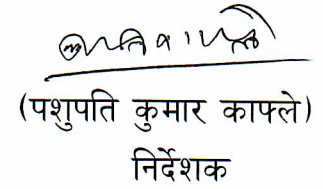 (पशुपति कुमार काफ्ले)
निर्देशक